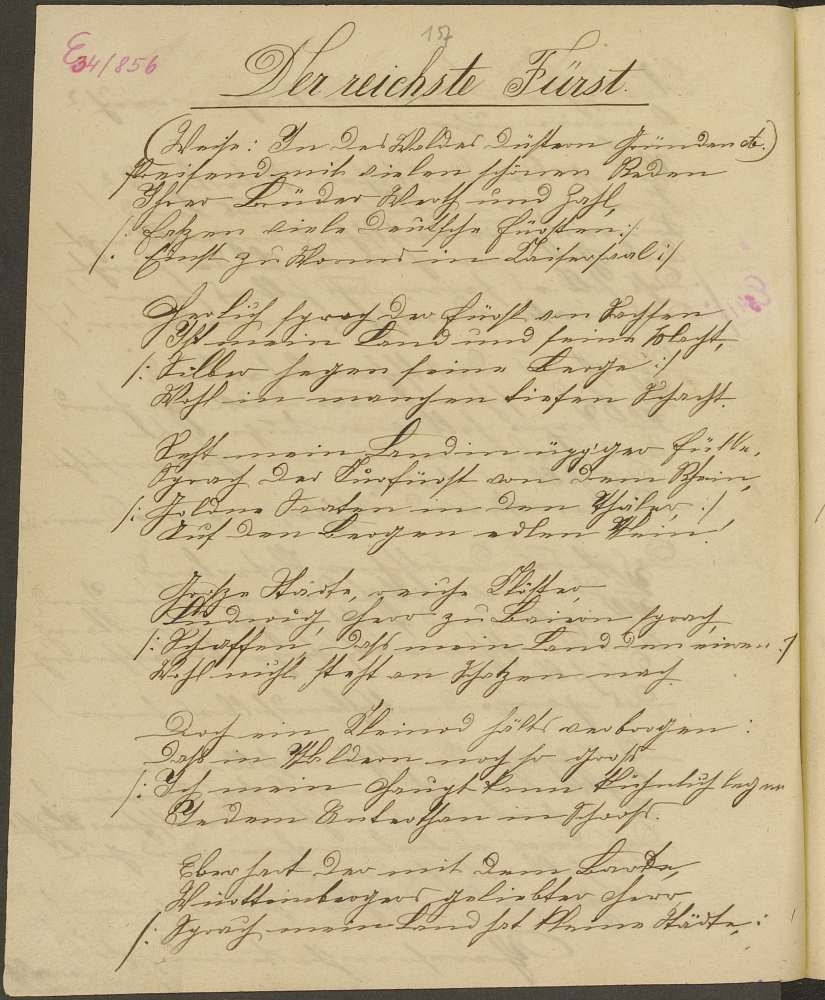 157
E 34/856
Der reichste Fürst.
(Weise: In des Waldes düstern Gründen etc.)
Preisend mit vielen schönen Reden
Ihrer Länder Werth und Zahl,
/: Saßen viele deutsche Fürsten :/
/: Einst zu Worms im Kaisersaal :/
Herlich, sprach der Fürst von Sachsen
Ist mein Land und seine Macht,
/: Silber hegen seine Berge :/
Wohl in manchen tiefen Schacht.
Seht mein Land in üppger Fülle,
Sprach der Kurfürst von dem Rhein,
/: Goldne Saaten in den Thäler, :/
Auf den Bergen edlen Wein!
Große Städte, reiche Klöster,
Ludewig, Herr zu Baiern sprach,
/: Schaffen, daß mein Land den euren :/
Wohl nicht steht an Schätzen nach.
Doch ein Kleinod hälts verborgen:
Daß in Wäldern noch so groß
/: Ich mein Haupt kann kühnlich legen
Jedem Unterthan in Schooß.
Eberhart der mit dem Barte,
Württembergers geliebter Herr,
/: Sprach mein Land hat kleine Städte, :